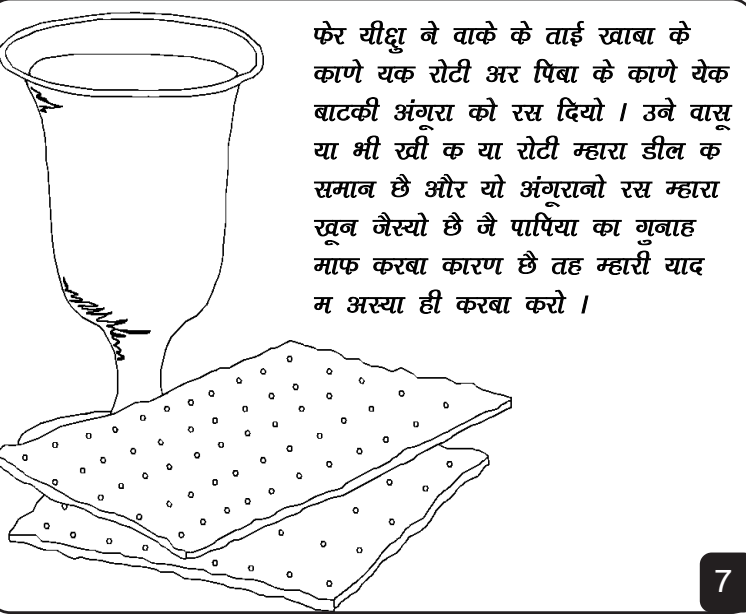 फेर यीक्षु ने वाके के ताई खाबा के
काणे यक रोटी अर पिबा के काणे येक
बाटकी अंगूरा को रस दियो । उने वासू
या भी खी क या रोटी म्हारा डील क
समान छै और यो अंगूरानो रस म्हारा
खून जैस्यो छै जै पापिया का गुनाह
माफ करबा कारण छै तह म्हारी याद
म अस्या ही करबा करो ।
7